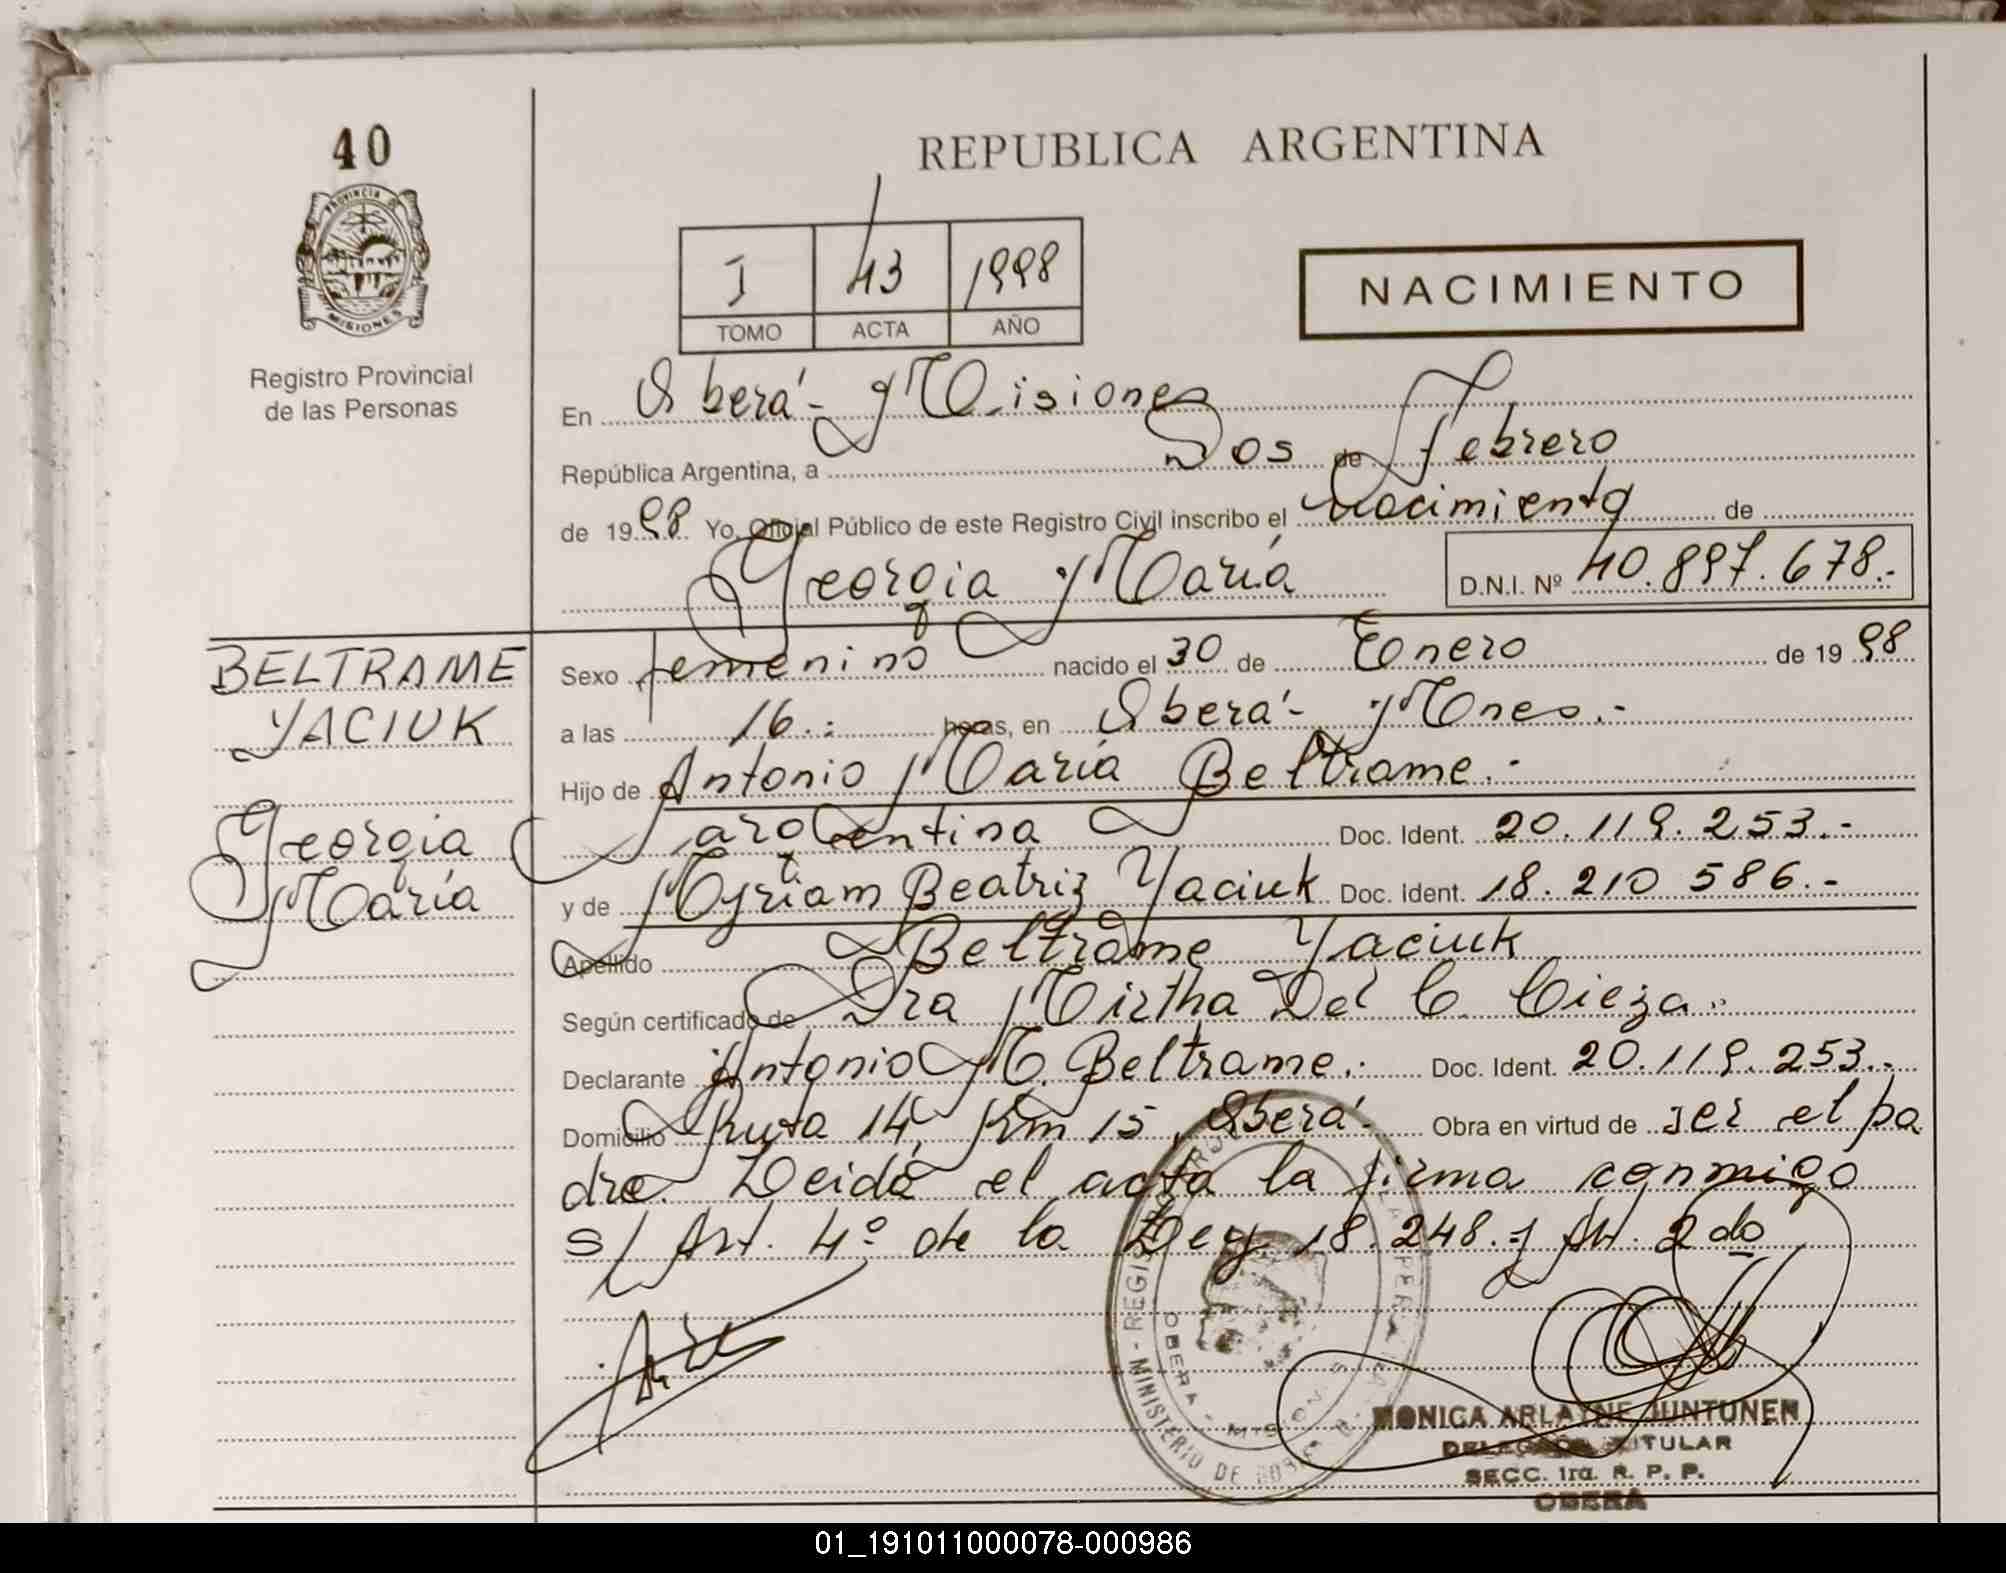 40
PROVINCIA DE
MISIONES
Registro Provincial
de las Personas
REPUBLICA ARGENTINA
I 43 1998
TOMO ACTA AÑO
NACIMIENTO
En Oberá - Misiones
República Argentina, a Dos de Febrero
de 1998 Yo, Oficial Público de este Registro Civil inscribo el nacimiento de
Georgia María D.N.I. Nº 40.897.678.-
BELTRAME
YACIUK
Georgia
María
Sexo femenino nacido el 30 de Enero de 1998
a las 16.: horas, en Oberá - Mnes.-
Hijo de Antonio María Beltrame.-
argentina Doc. Ident. 20.119.253.-
y de Myriam Beatriz Yaciuk Doc. Ident. 18.210 586.-
Apellido Beltrame Yaciuk
Según certificado de Dra Mirtha Del C. Cieza.
Declarante Antonio M. Beltrame. Doc. Ident. 20.119.253.-
Domicilio Ruta 14, Km 15, Oberá. Obra en virtud de ser el pa
dre. Leida el acta la firma conmigo
s/ Art. 4º de la Ley 18.248. y Art. 2do
MINISTERIO DE
OBERA - MISIONES
MONICA ARLAYNE JUNTUNEN
DELEGADA TITULAR
SECC. 1ra. R. P. P.
OBERA
01_191011000078-000986